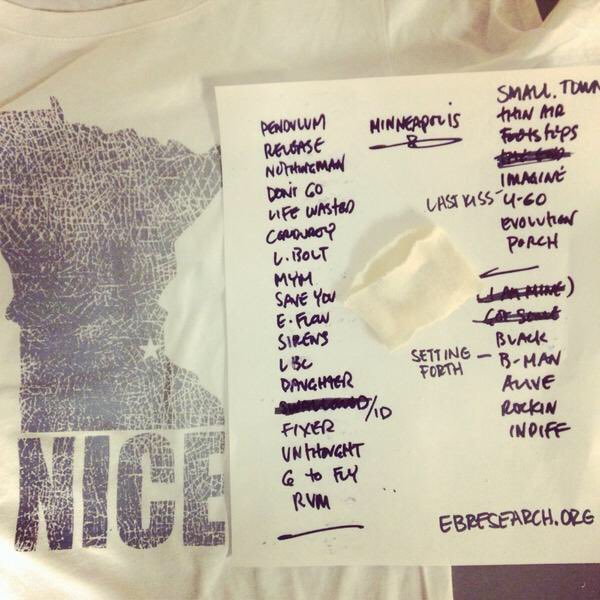 NICE
MINNEAPOLIS
PENDULUM
RELEASE
NOTHINGMAN
DON'T GO
LIFE WASTED
CORDUROY
L. BOLT
MYM
SAVE YOU
E. FLOW
SIRENS
LBC
DAUGHTER
/ID
FIXER
UNTHOUGHT
G to FLY
RVM
SMALL. TOWN
tHIN AIR
FootstEps
IMAGINE
LAST KISS - U-GO
EVOLUTION
PORCH
I AM MINE)
GET SOME
BLACK
SETTING FORTH - B-MAN
ALIVE
ROCKIN
INDIFF
EBRESEARCH.ORG